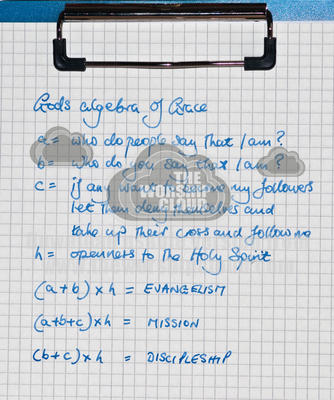 Gods algebra of Grace
a = who do people say that I am?
b = who do you say that I am?
c = if any want to become my followers
let them deny themselves and
take up their cross and follow me
h = openness to the Holy Spirit
(a+b) x h = EVANGELISM
(a+b+c) x h = MISSION
(b+c) x h = DISCIPLESHIP